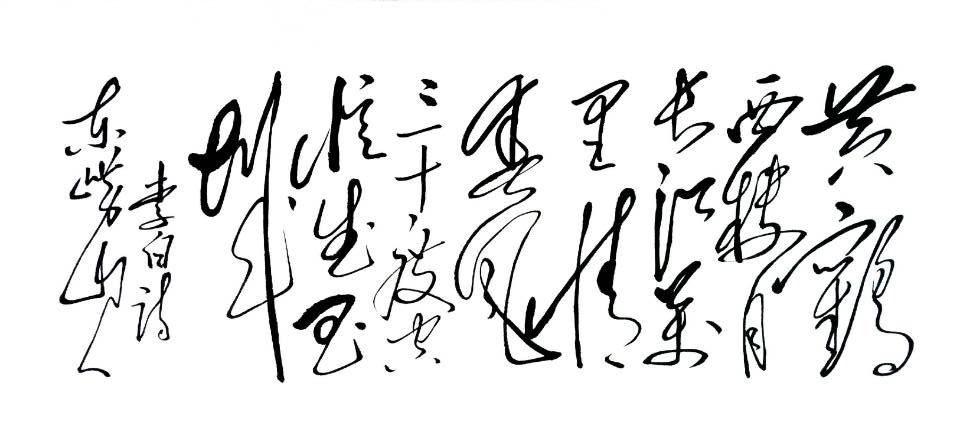 黄鹤
西楼月
长江万
里情
春风
三十度空
忆武昌
城
李白诗
东崂山人